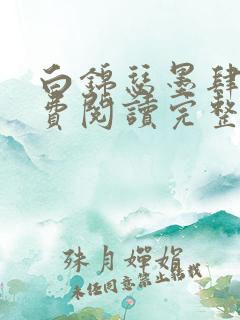 白锦瑟墨肆
費閱讀完整
殊月嬋娟
未经同意禁止转载